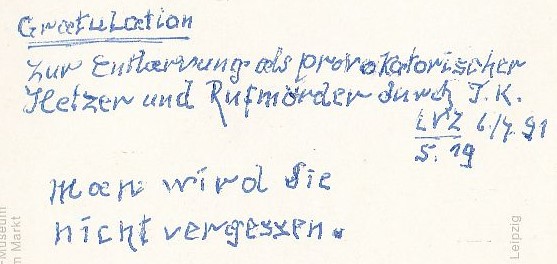 Gratulation
zur Entlarvung als provokatorischer
Hetzer und Rufmörder durch J.K.
LVZ 6./7. 91
S. 19
Man wird Sie
nicht vergessen.
Museum
m Markt
Leipzig